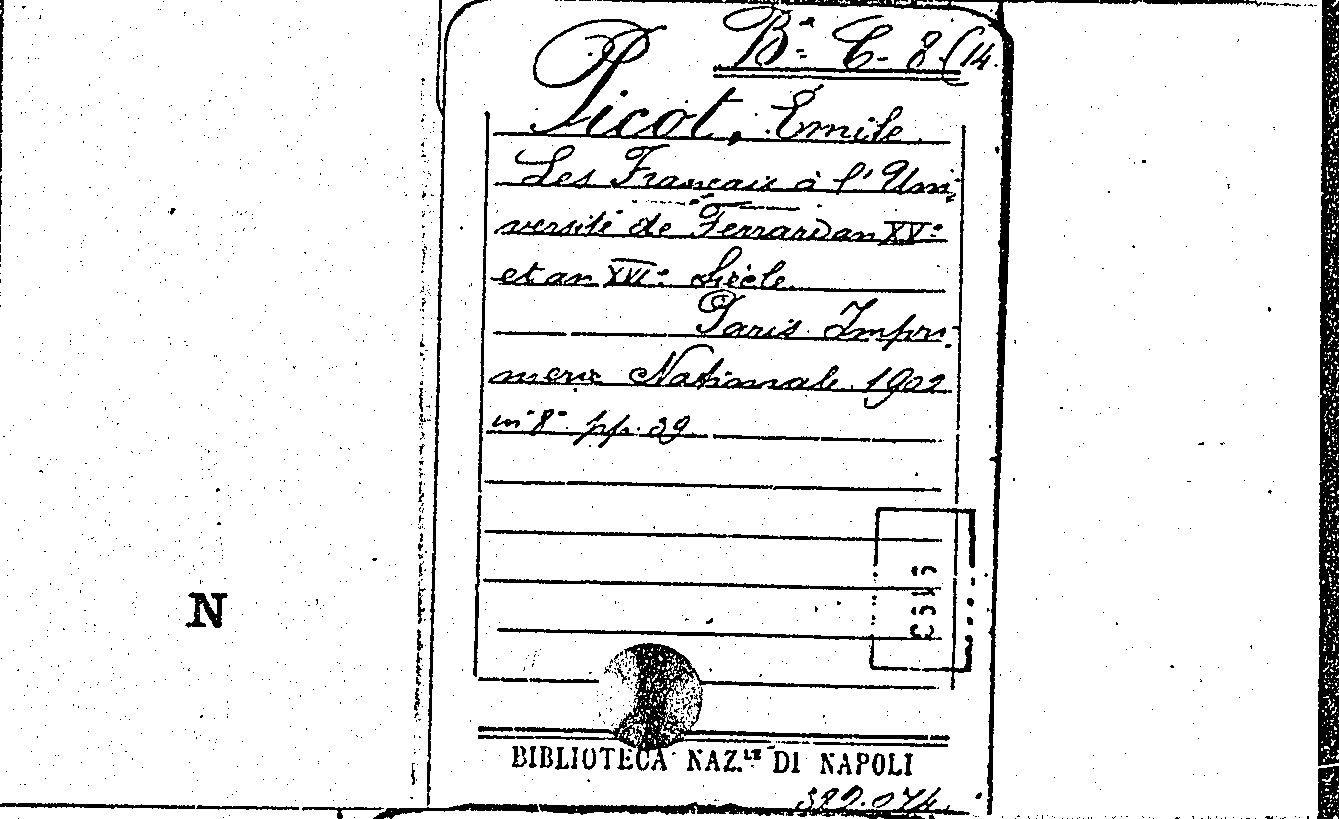 Bª. C. 8 (14.
Picot, Émile
Les Français à l'Uni-
versité de Ferrare au XVe
et au XVIe Siècle.
Paris. Impri-
merie Nationale. 1902
in 8° pp. 39
N
BIBLIOTECA NAZ.LE DI NAPOLI